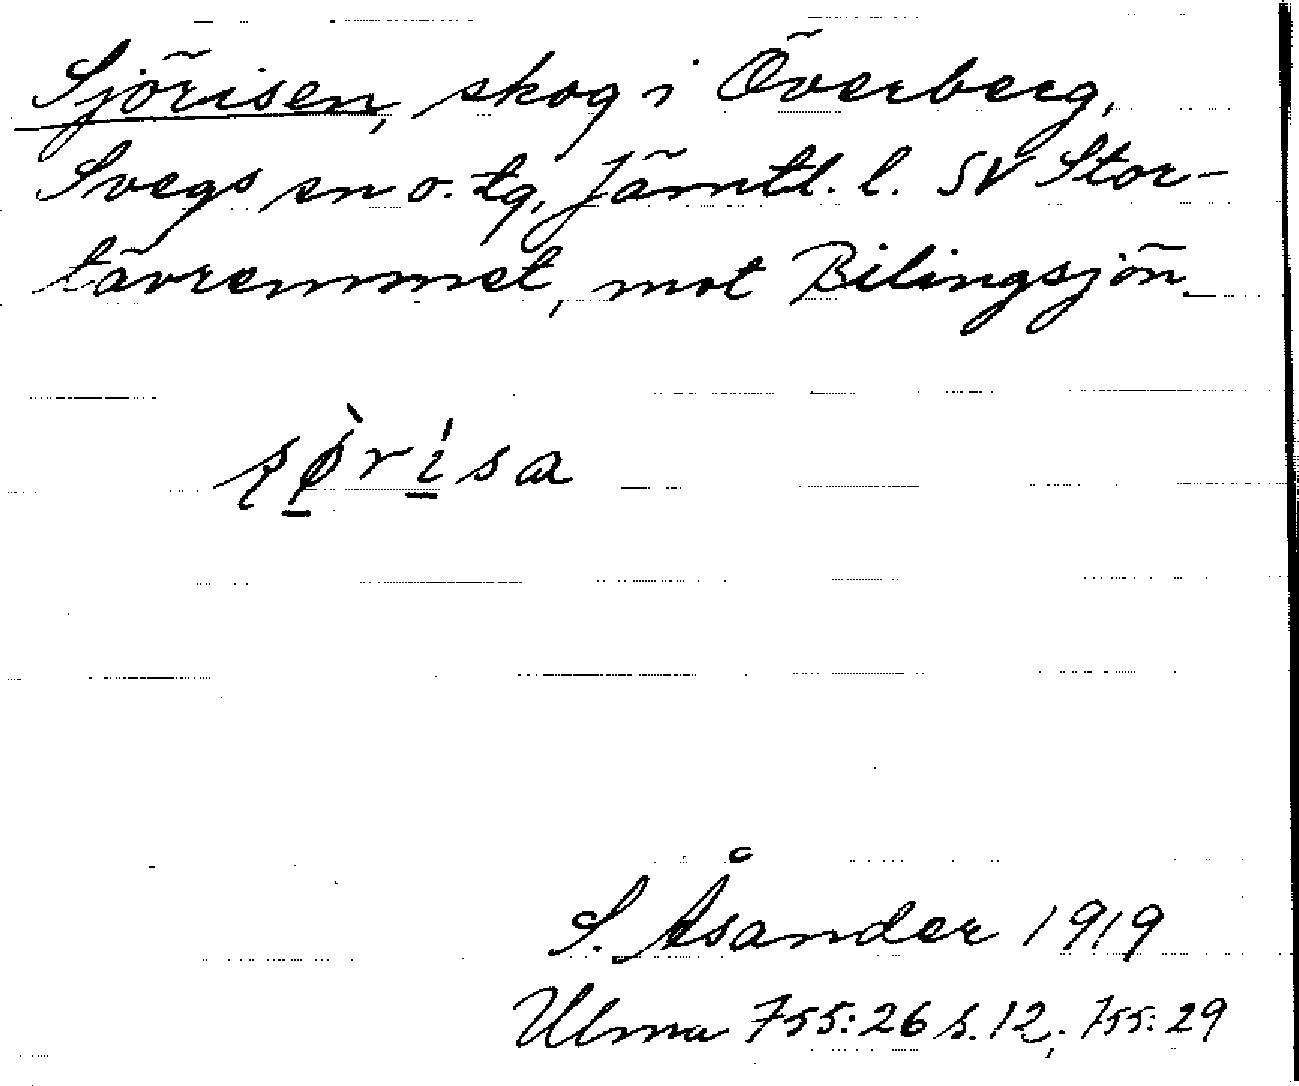 Sjörisen, skog i Överberg,
Svegs sn o. tg, Jämtl. l. SV Stor-
tävremmet, mot Bilingsjön.
S. Åsander 1919
Ulma 755:26 s. 12; 755:29